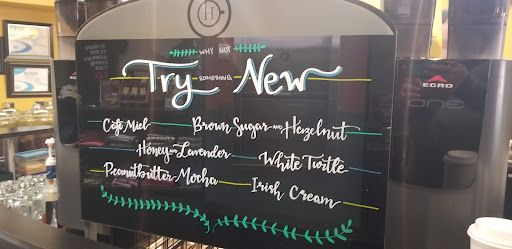 H
WHY NOT
Try SOMETHING New
Café Miel
Brown Sugar AND Hazelnut
Honey AND Lavender
White Turtle
Peanutbutter Mocha
Irish Cream
EGRO
one